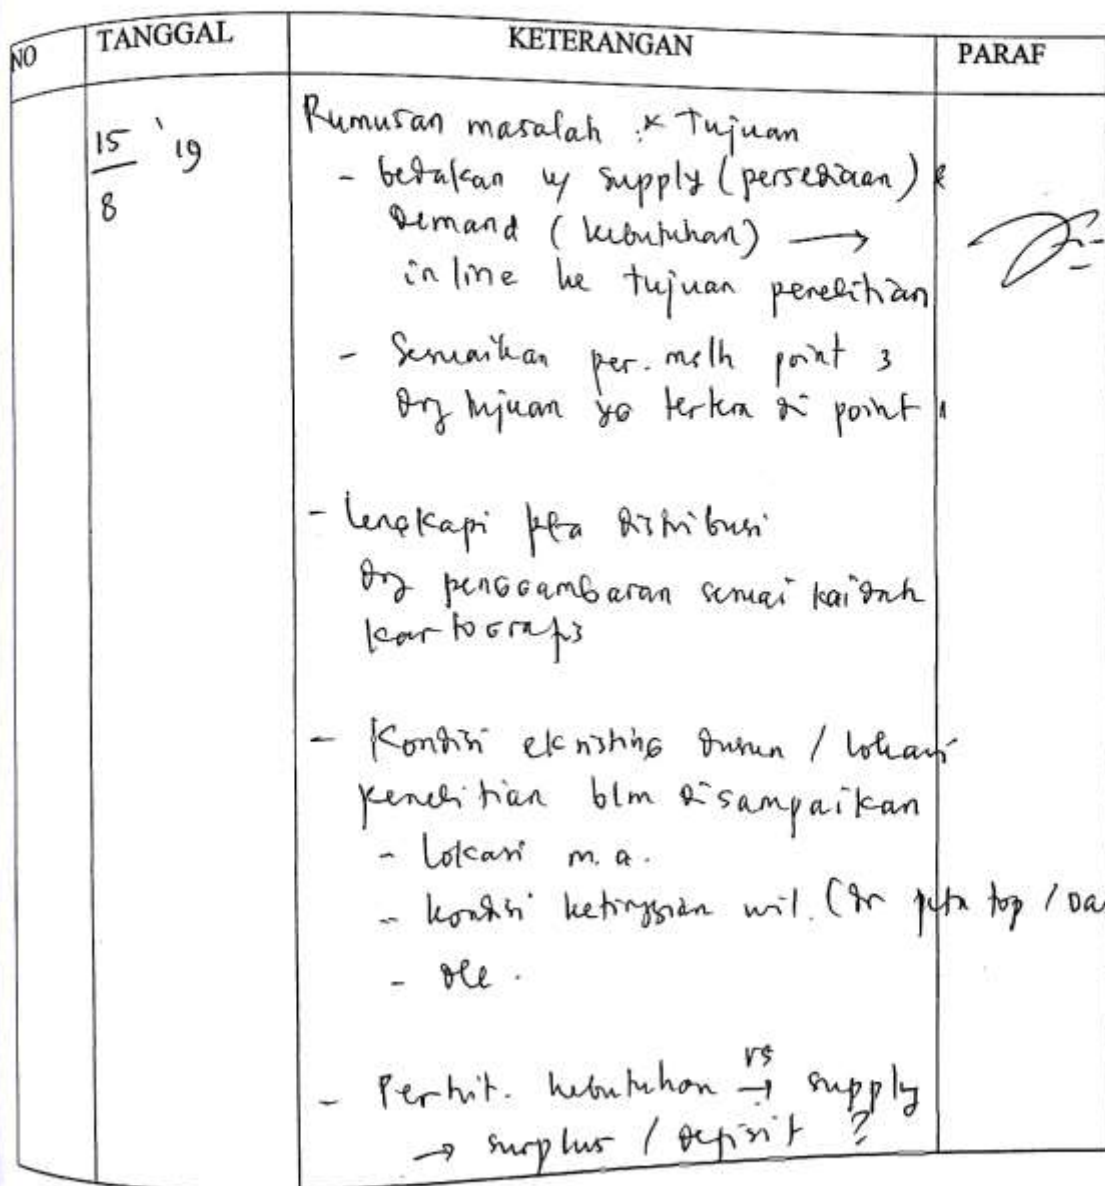 NO TANGGAL KETERANGAN PARAF
15 '19
8
Rumusan masalah & Tujuan
- bedakan u/ supply (persediaan) &
Demand (kebutuhan) →
in line ke tujuan penelitian
- Sesuaikan per. mslh point 3
dng tujuan yg tertera di point 1
- lengkapi peta distribusi
dng penggambaran sesuai kaidah
kartografi
- Kondisi eksisting dusun / lokasi
penelitian blm disampaikan
- lokasi m.a.
- kondisi ketinggian wil. (dr peta top /
- dll.
- Perhit. kebutuhan vs → supply
→ surplus / defisit ?